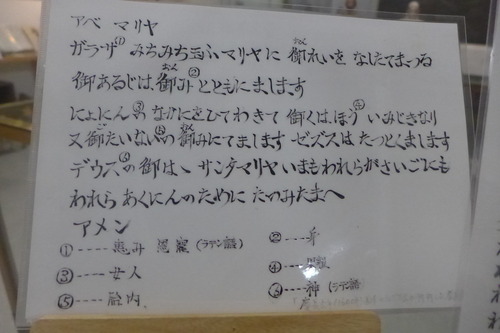 アベ マリヤ
ガラサ① みちみち玉ふマリヤに 御れいを なしたてまつる
御あるじは 御み② とともにまします
にょにん③の なかにをひてわきて 御くはほう④ いみじきなり
又 御たいない⑤の 御みにてまします ゼズスは たつとくまします
デウス⑥の御はゝ サンタマリヤ いまもわれらがさいごにも
われら あくにんのために たのみたまへ
アメン
①----恵み 恩寵(ラテン語) ②----身
③----女人 ④----
⑤----胎内 ⑥----神(ラテン語)